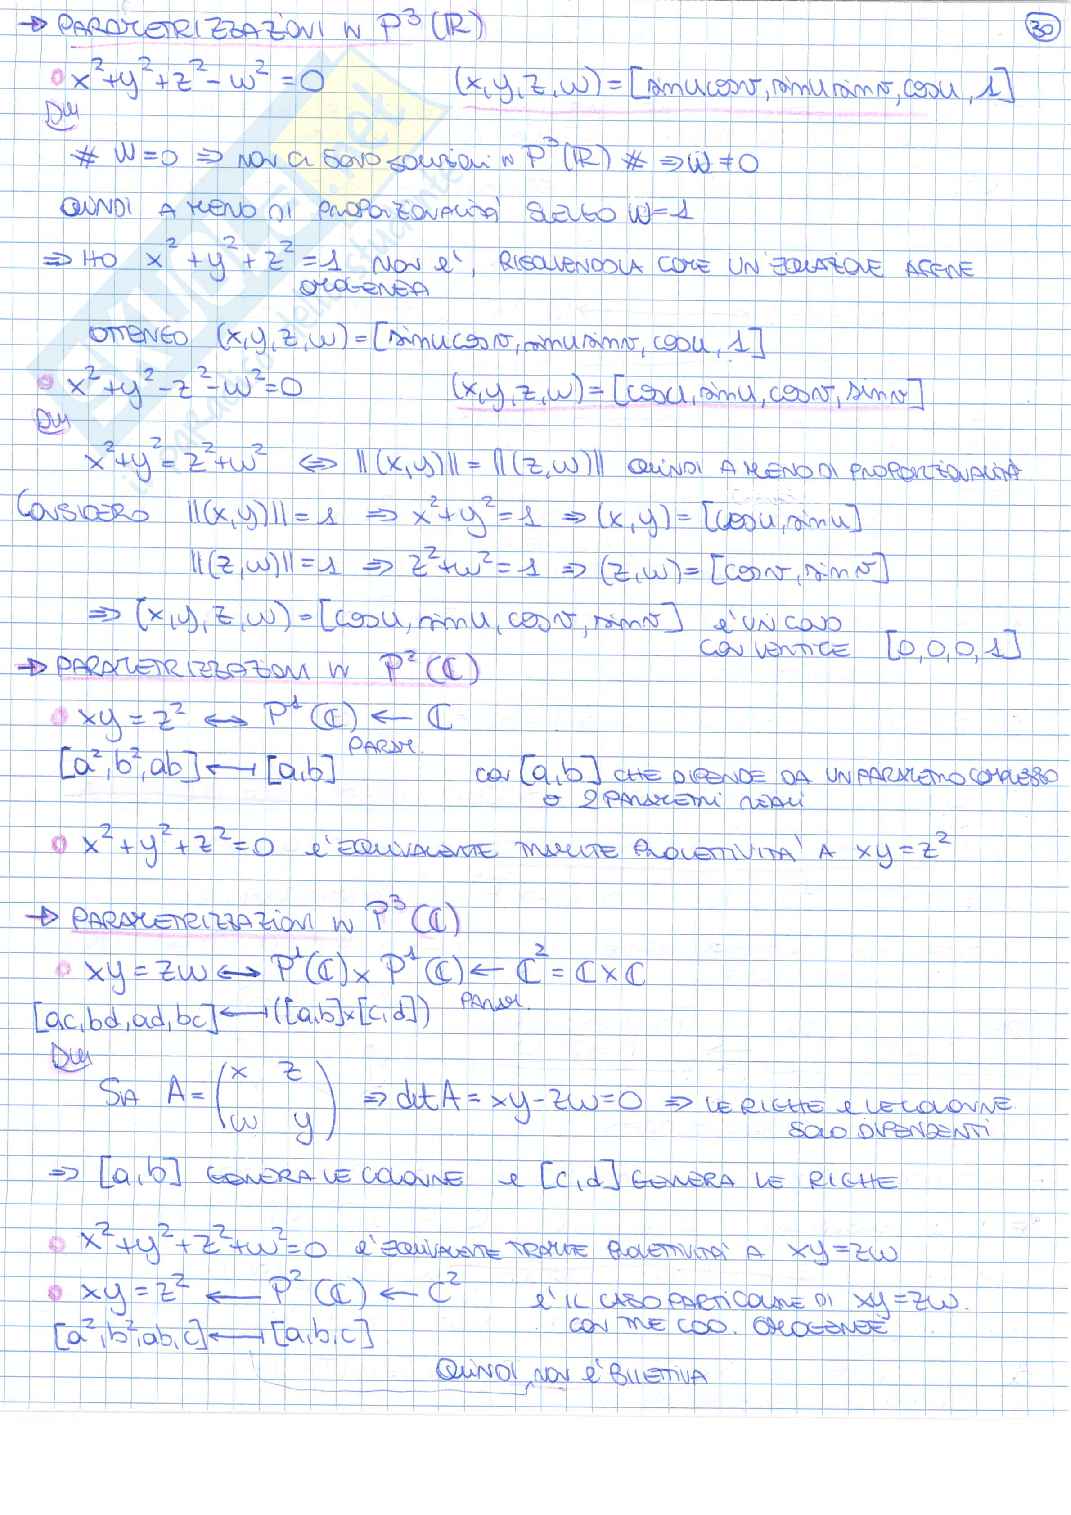 → PARAMETRIZZAZIONI IN P³(ℝ)
30
x²+y²+z²-w²=0 (x,y,z,w)=[sinucosv, sinusinv, cosu, 1]
Dim
# W=0 ⇒ NON CI SONO SOLUZIONI IN P³(ℝ) # ⇒ W≠0
QUINDI A MENO DI PROPORZIONALITÀ SCELGO W=1
⇒ HO x²+y²+z²=1 NON È OMOGENEA, RISOLVENDOLA COME UN'EQUAZIONE AFFINE
OTTENGO (x,y,z,w)=[sinucosv, sinusinv, cosu, 1]
x²+y²-z²-w²=0 (x,y,z,w)=[cosu, sinu, cosv, sinv]
Dim
x²+y²=z²+w² ⇔ ||(x,y)||=||(z,w)|| QUINDI A MENO DI PROPORZIONALITÀ
CONSIDERO ||(x,y)||=1 ⇒ x²+y²=1 ⇒ (x,y)=[cosu, sinu]
||(z,w)||=1 ⇒ z²+w²=1 ⇒ (z,w)=[cosv, sinv]
⇒ (x,y,z,w)=[cosu, sinu, cosv, sinv] È UN CONO
CON VERTICE [0,0,0,1]
→ PARAMETRIZZAZIONI IN P²(ℂ)
xy=z² ↔ P¹(ℂ) ← ℂ
PARAM.
[a²,b²,ab] ⟵ [a,b] CON [a,b] CHE DIPENDE DA UN PARAMETRO COMPLESSO
O 2 PARAMETRI REALI
x²+y²+z²=0 È EQUIVALENTE TRAMITE PROIETTIVITÀ A xy=z²
→ PARAMETRIZZAZIONI IN P³(ℂ)
xy=zw ↔ P¹(ℂ)×P¹(ℂ) ← ℂ²=ℂ×ℂ
PARAM.
[ac,bd,ad,bc] ⟵ ([a,b]×[c,d])
Dim
SIA A=(x z
w y) ⇒ detA=xy-zw=0 ⇒ LE RIGHE E LE COLONNE
SONO DIPENDENTI
⇒ [a,b] GENERA LE COLONNE E [c,d] GENERA LE RIGHE
x²+y²+z²+w²=0 È EQUIVALENTE TRAMITE PROIETTIVITÀ A xy=zw
xy=z² ⟵ P²(ℂ) ← ℂ² È IL CASO PARTICOLARE DI xy=zw.
CON TRE COO. OMOGENEE
[a²,b²,ab,c] ⟵ [a,b,c]
QUINDI NON È BIIETTIVA